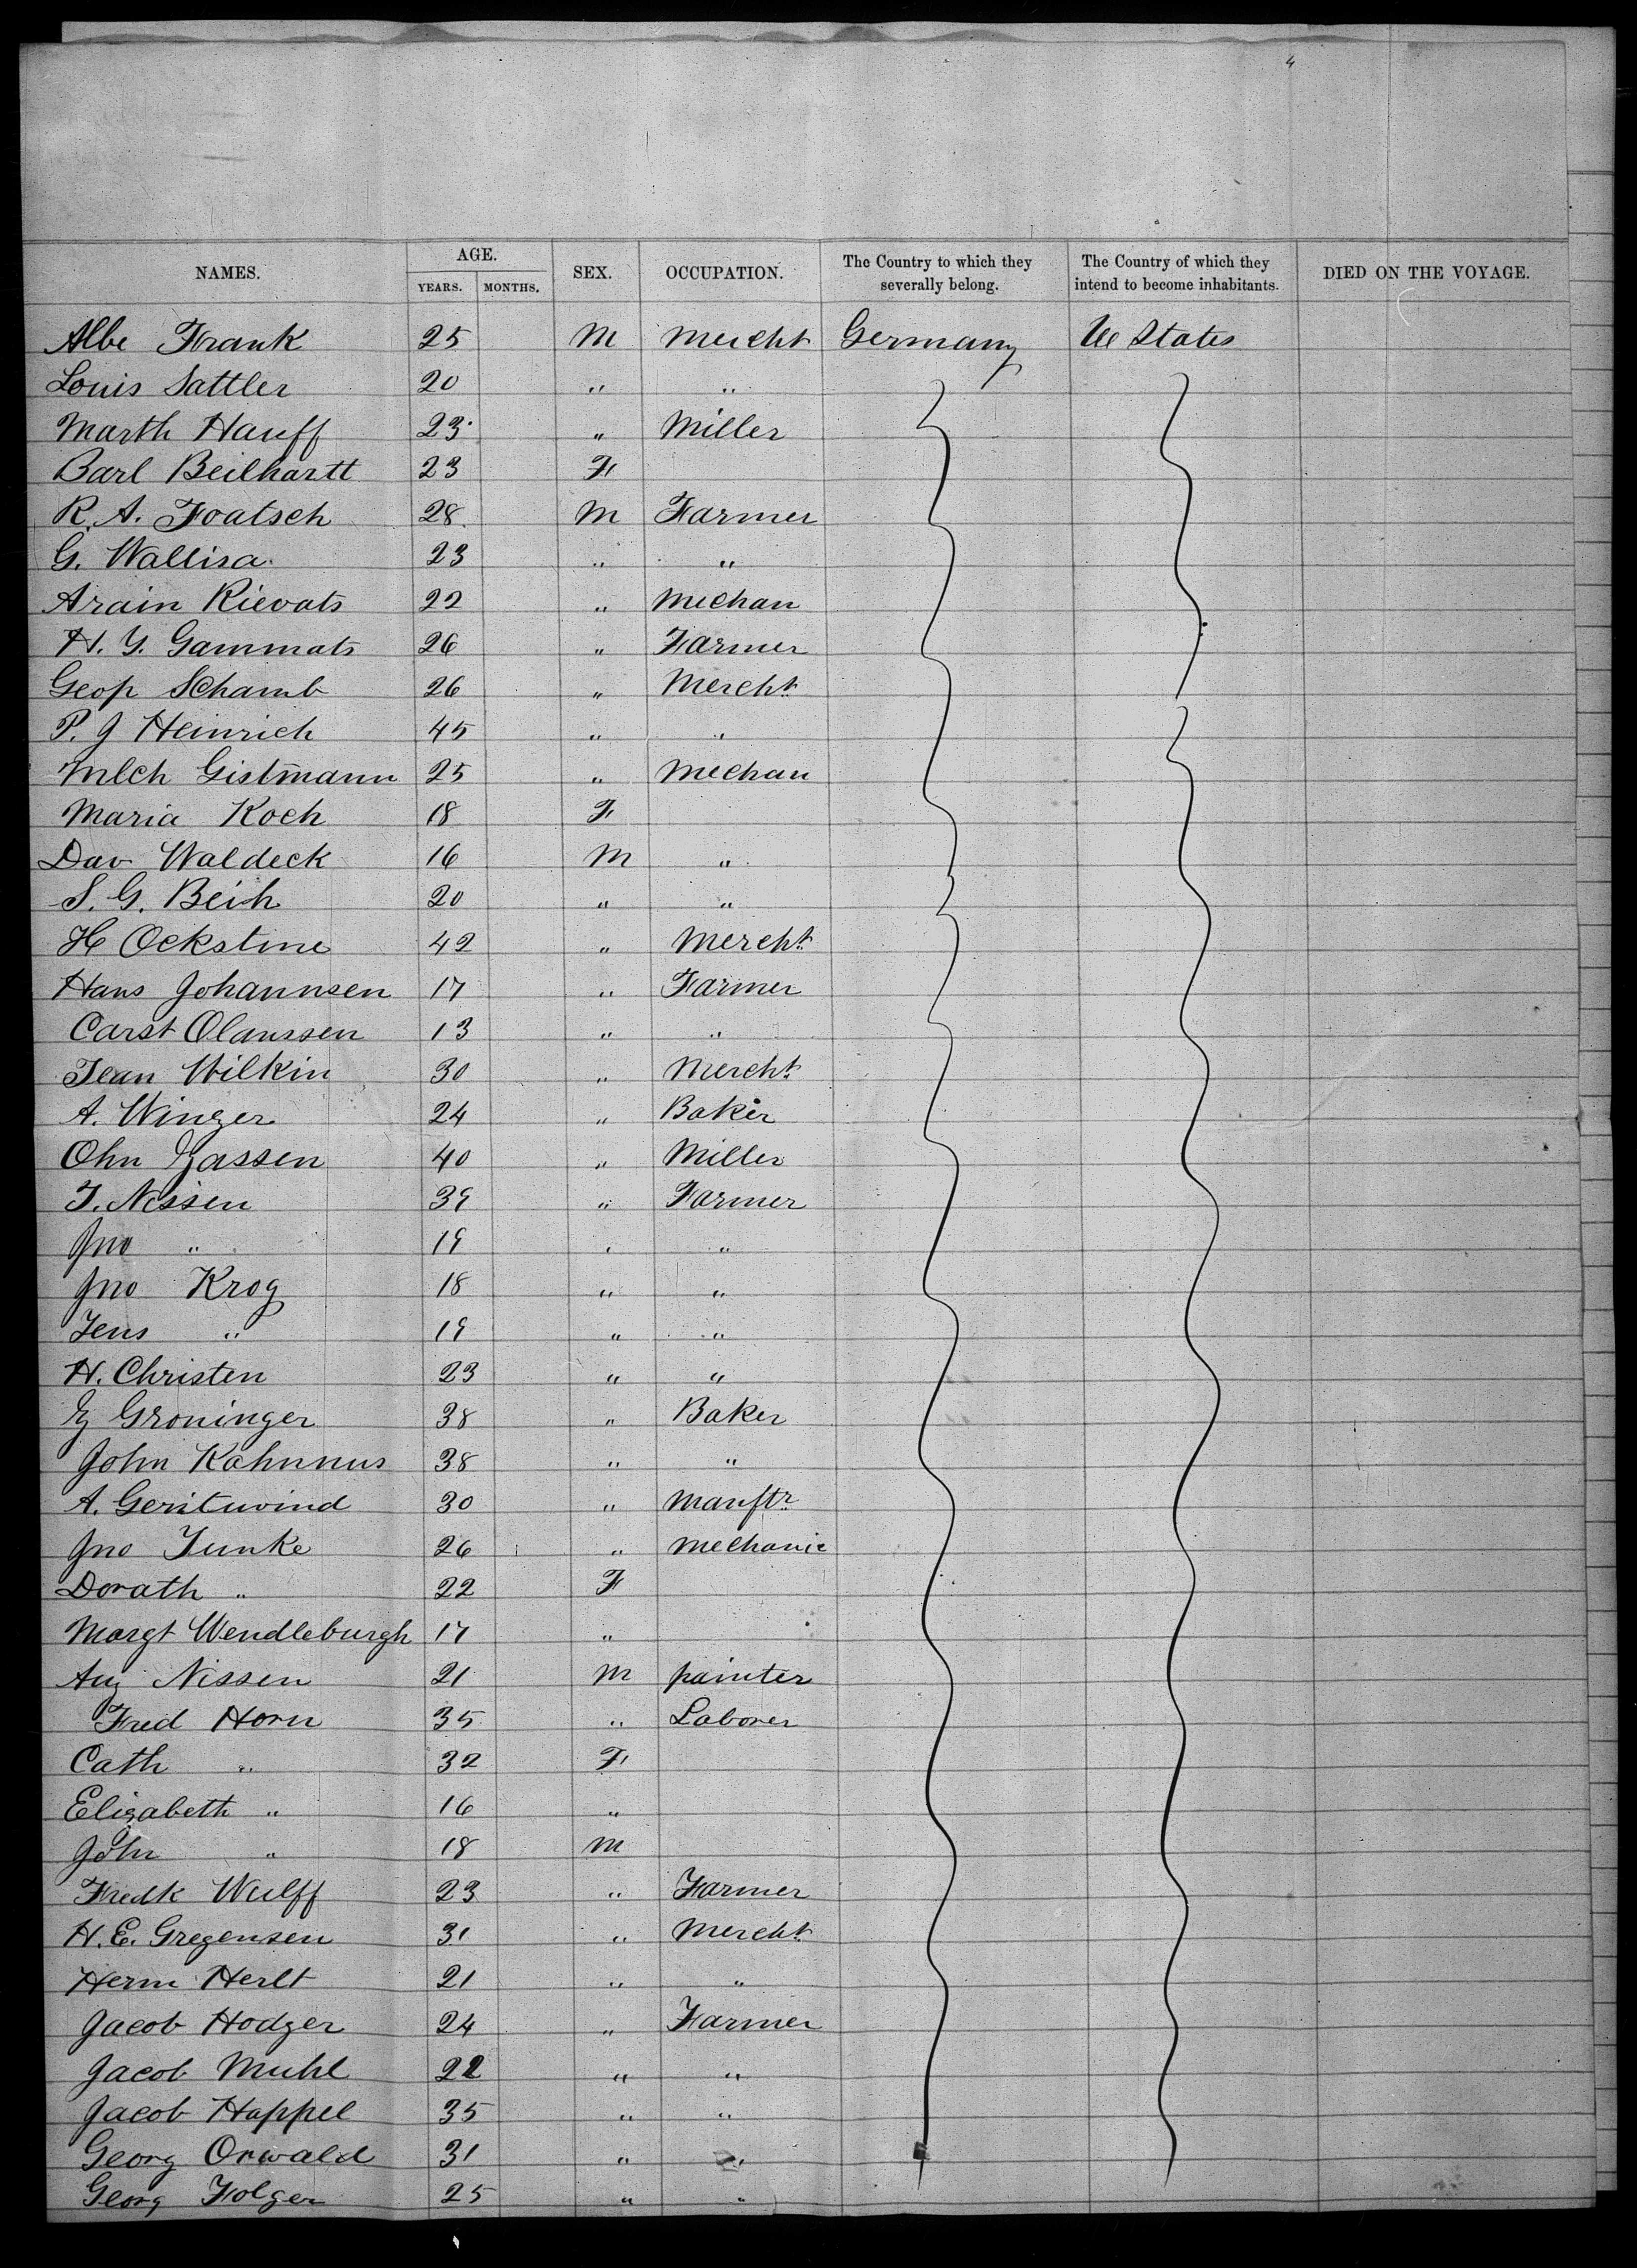 4
NAMES. AGE. SEX. OCCUPATION. The Country to which they severally belong. The Country of which they intend to become inhabitants. DIED ON THE VOYAGE.
YEARS. MONTHS.
Albe Frank 25 M Mercht Germany U States
Louis Sattler 20 " "
Marth Hauff 23 " Miller
Barl Beilhartt 23 F
R. A. Foatsch 28 M Farmer
G. Wallisa 23 " "
Arain Rievats 22 " Mechan
H. Y. Gammats 26 " Farmer
Geop Schamb 26 " Mercht
P. J Heinrich 45 " "
Mlch Gistmann 25 " Mechan
Maria Koch 18 F
Dav Waldeck 16 M "
S. G. Beih 20 " "
H Ockstine 42 " Mercht
Hans Johannsen 17 " Farmer
Carst Olaussen 13 " "
Jean Wilkin 30 " Mercht
A. Winzer 24 " Baker
Ohn Zassen 40 " Miller
J. Nissen 39 " Farmer
Jno " 19 " "
Jno Krog 18 " "
Jens " 19 " "
H. Christen 23 " "
Groninger 38 " Baker
John Kahnnus 38 " "
A. Geritwind 30 " Manftr
Jno Junke 26 " Mechanic
Dorath " 22 F
Margt Wendleburgh 17 "
Aug Nissen 21 M painter
Fred Horn 35 " Laborer
Cath " 32 F
Elisabeth " 16 "
John " 18 M
Fredk Wulff 23 " Farmer
H. E. Gregensen 31 " Mercht
Herm Herlt 21 " "
Jacob Hodger 24 " Farmer
Jacob Muhl 22 " "
Jacob Happel 35 " "
Georg Orwald 31 " "
Georg Folger 25 " "